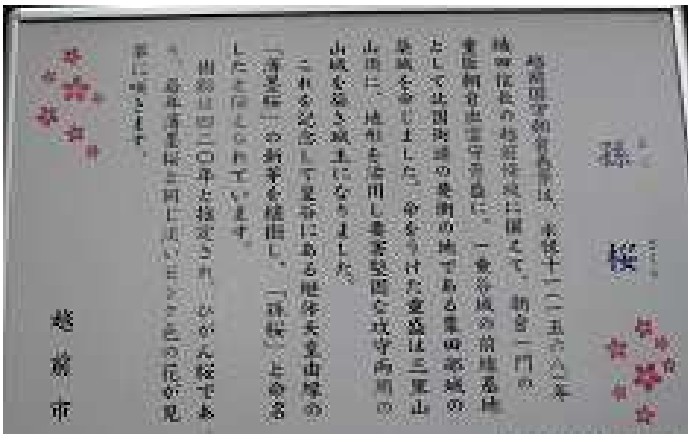 孫桜
越前国守朝倉義景は、永禄十一(一五六八)年
織田信長の越前侵攻に備えて、朝倉一門の
重臣朝倉出雲守景盛に、一乗谷城の前線基地
として北国街道の要衝の地である粟田部城の
築城を命じました。命をうけた景盛は三里山
山頂に、地形を活用し要害堅固な攻守両用の
山城を築き城主になりました。
これを記念して にある継体天皇由縁の
「薄墨桜」の新芽を植樹し、「孫桜」と命名
したと伝えられています。
樹齢は四二〇年と推定され、ひがん桜であ
り、毎年薄墨桜と同じ淡いピンク色の花が見
事に咲きます。
越前市